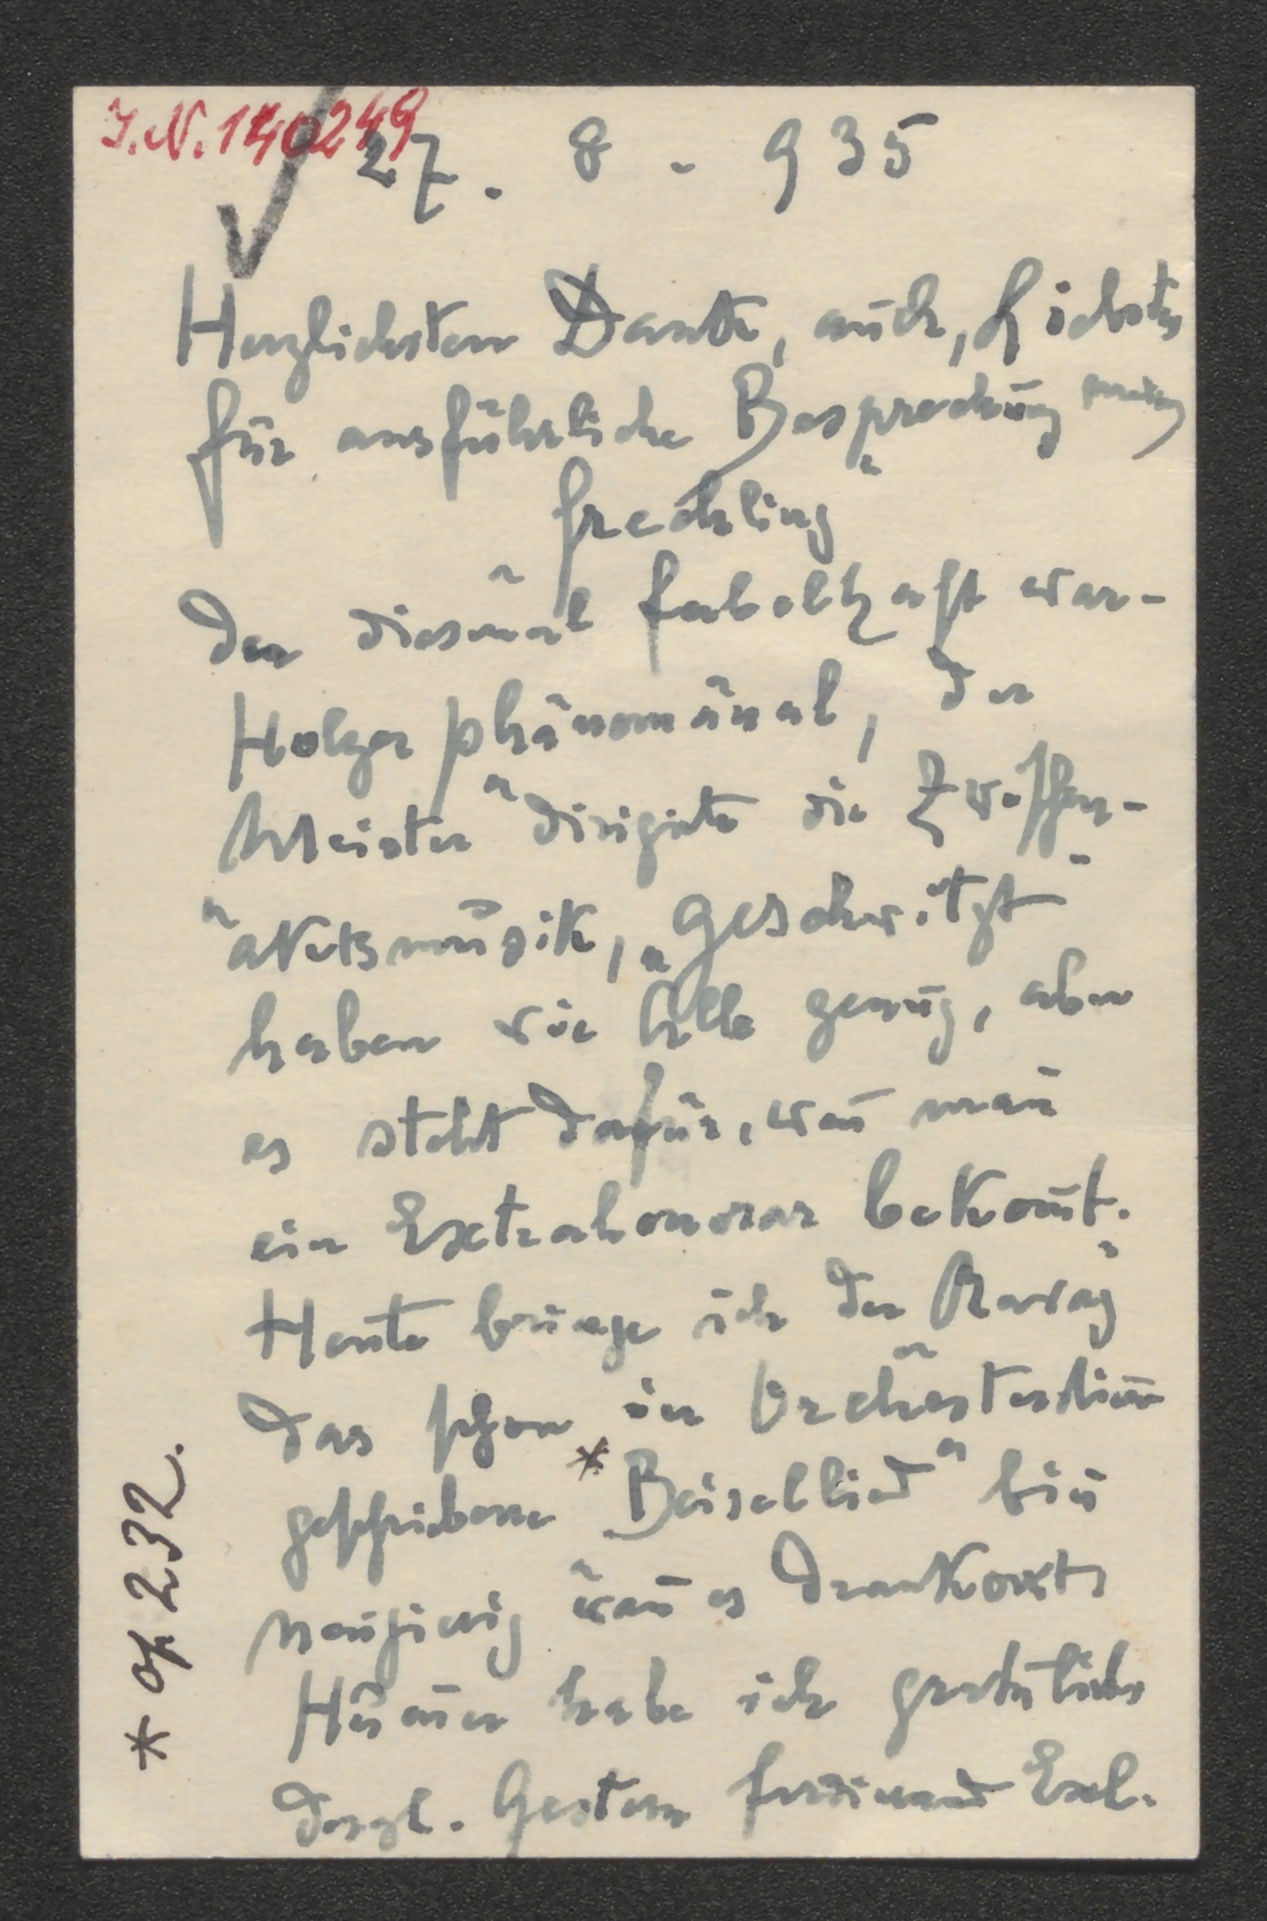 I.N. 140249
27. 8 - 935
Herzlichsten Dank, auch, Liebster
für ausführliche Besprechung
Frechling"
der diesmal fabelhaft war-
Holger phänomänal, der
Meister" dirigirte die Zwischen-
"aktsmusik, "geschwitzt"
haben wie Alle genug, aber
es steht dafür, wen̄ man
ein Extrahonorar bekom̄t.
Heute bringe ich der Ravag"
das schon in Orchesterstim̄
geschriebene * "Beisellied" bin
neugierig wan̄ es drankom̄t
habe ich
dergl. Gestern Ferdinand Exl.
* op 232.